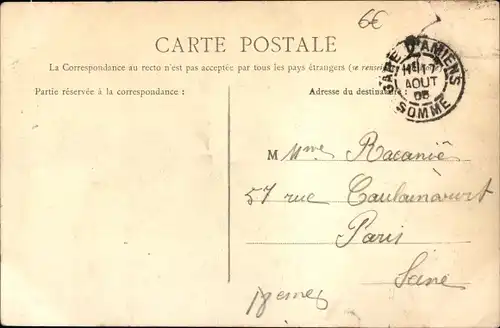 6€
CARTE POSTALE
La Correspondance au recto n'est pas acceptée par tous les pays étrangers (se
Partie réservée à la correspondance :
Adresse du destinataire :
GARE D'AMIENS
17
AOUT
SOMME
M Mme
57 rue Caulaincourt
Paris
Seine